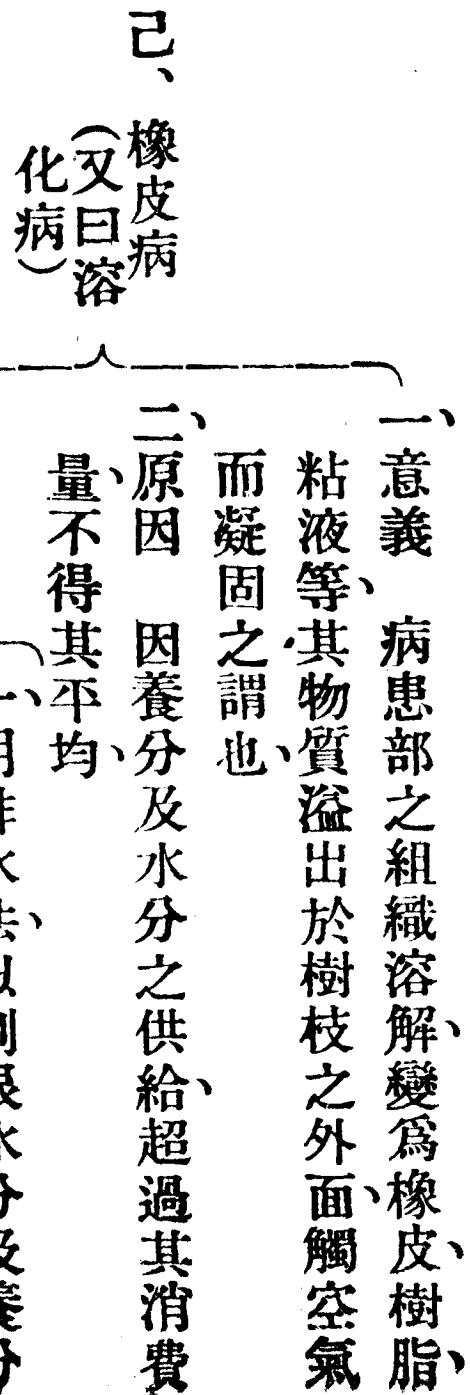 己、橡皮病
（又曰溶
化病）
一、意義　病患部之組織溶解、變爲橡皮、樹脂、
粘液等、其物質溢出於樹枝之外面、觸空氣
而凝固之謂也、
二、原因　因養分及水分之供給、超過其消費
量、不得其平均、